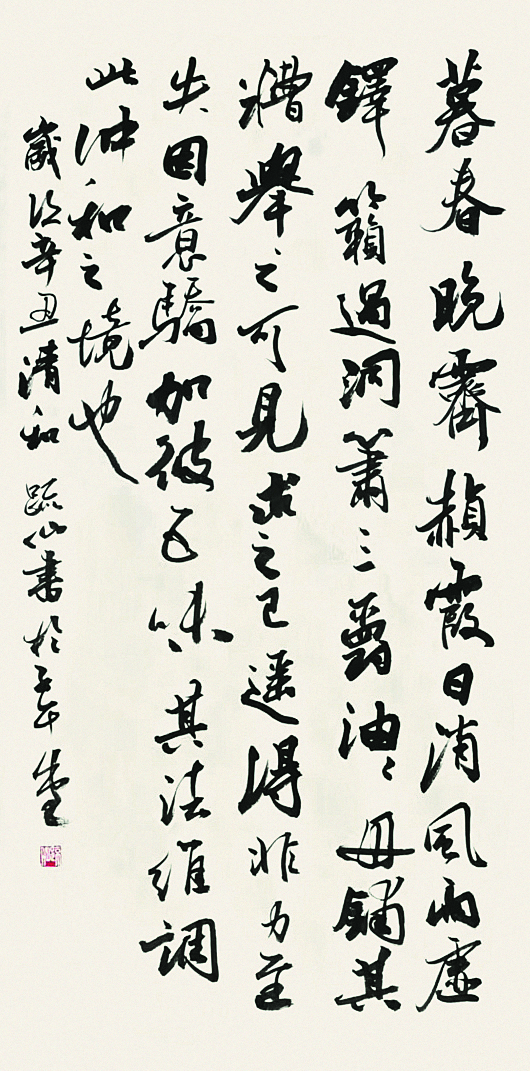 暮春晚霽赬霞日消風雨虛
鐸籟過洞簫三爵油油毋餔其
糟舉之可見求之已遥得非力至
失因意驕加彼五味其法維調
此沖和之境也
歲次辛丑清和仙書於午堂